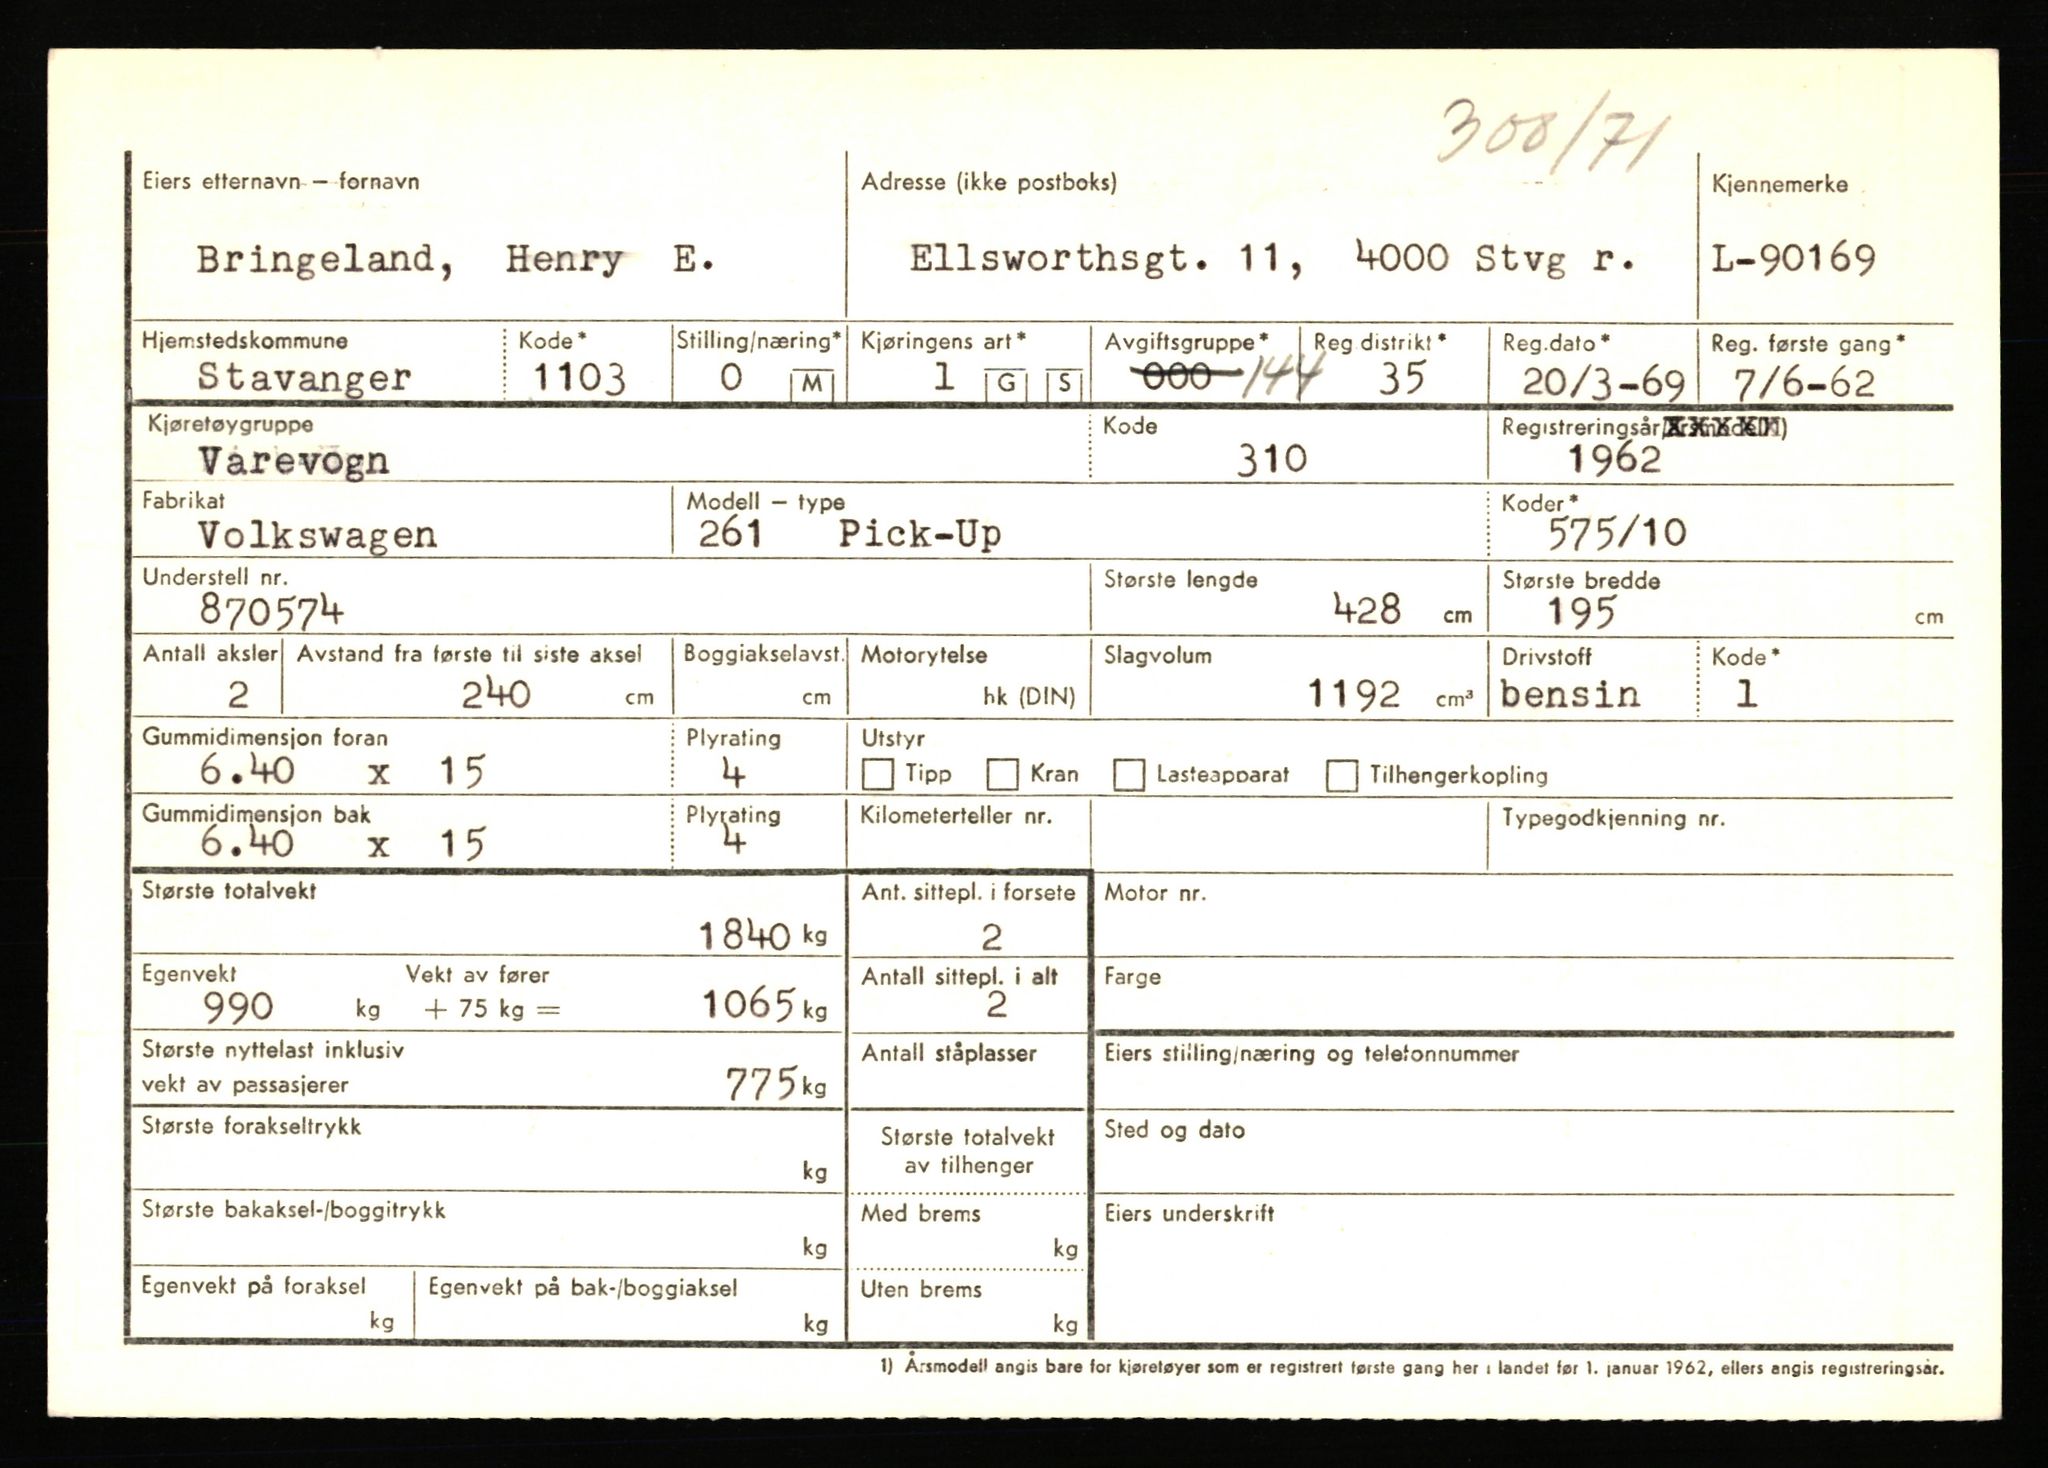 308/71
Eiers etternavn – fornavn Adresse (ikke postboks) Kjennemerke
Bringeland, Henry E. Ellsworthsgt. 11, 4000 Stvg r. L-90169
Hjemstedskommune Kode* Stilling/næring* Kjøringens art* Avgiftsgruppe* Reg.distrikt* Reg.dato* Reg. første gang*
Stavanger 1103 0 M 1 G S 000 144 35 20/3-69 7/6-62
Kjøretøygruppe Kode Registreringsår/
Varevogn 310 1962
Fabrikat Modell – type Koder*
Volkswagen 261 Pick-Up 575/10
Understell nr. Største lengde Største bredde
870574 428 cm 195 cm
Antall aksler Avstand fra første til siste aksel Boggiakselavst. Motorytelse Slagvolum Drivstoff Kode*
2 240 cm cm hk (DIN) 1192 cm³ bensin 1
Gummidimensjon foran Plyrating Utstyr
6.40 x 15 4 Tipp Kran Lasteapparat Tilhengerkopling
Gummidimensjon bak Plyrating Kilometerteller nr. Typegodkjenning nr.
6.40 x 15 4
Største totalvekt Ant. sittepl. i forsete Motor nr.
1840 kg 2
Egenvekt Vekt av fører Antall sittepl. i alt Farge
990 kg + 75 kg = 1065 kg 2
Største nyttelast inklusiv Antall ståplasser Eiers stilling/næring og telefonnummer
vekt av passasjerer 775 kg
Største forakseltrykk Største totalvekt Sted og dato
av tilhenger
kg
Største bakaksel-/boggitrykk Med brems Eiers underskrift
kg kg
Egenvekt på foraksel Egenvekt på bak-/boggiaksel Uten brems
kg kg kg
1) Årsmodell angis bare for kjøretøyer som er registrert første gang her i landet før 1. januar 1962, ellers angis registreringsår.